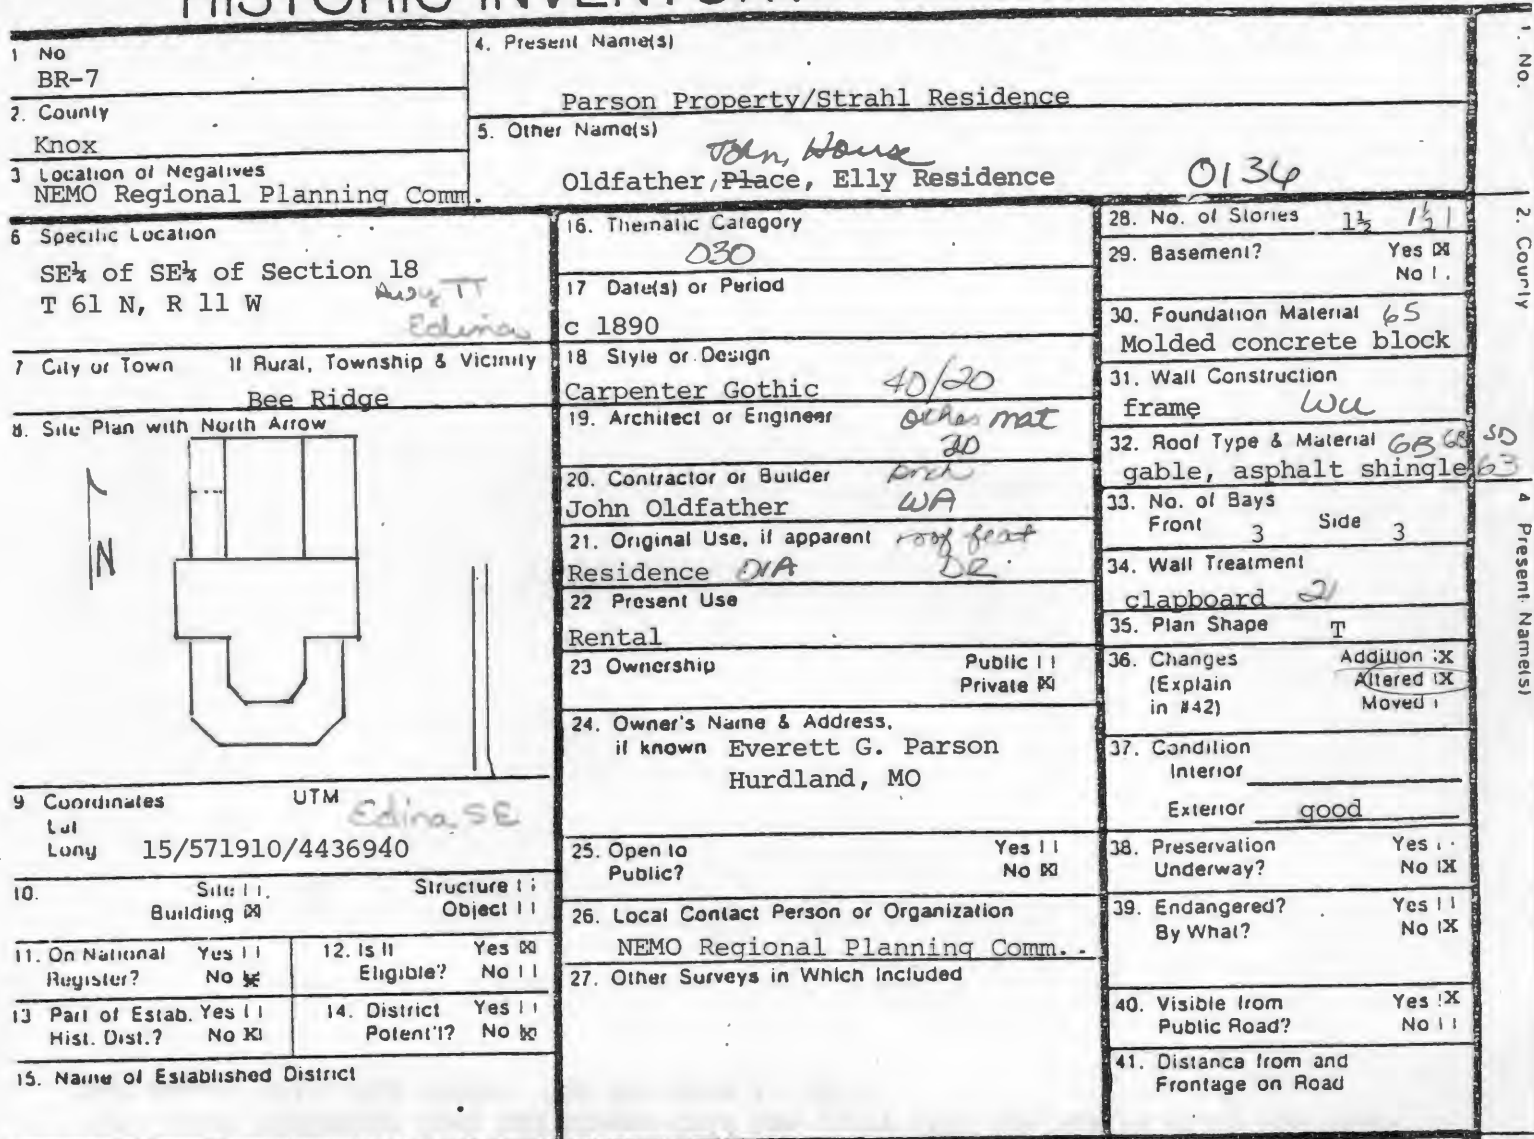 HISTORIC INVENTORY
1 No
BR-7
2. County
Knox
3 Location of Negatives
NEMO Regional Planning Comm.
4. Present Name(s)
Parson Property/Strahl Residence
5. Other Name(s)
John, House
Oldfather, Place, Elly Residence
0136
6 Specific Location
SE¼ of SE¼ of Section 18
T 61 N, R 11 W
Edina
7 City or Town If Rural, Township & Vicinity
Bee Ridge
8. Site Plan with North Arrow
N
9 Coordinates UTM
Lat
Long 15/571910/4436940
Edina, SE
10. Site Structure
Building X Object
11. On National Yes
Register? No X
12. Is It Yes X
Eligible? No
13 Part of Estab. Yes
Hist. Dist.? No X
14. District Yes
Potent'l? No X
15. Name of Established District
16. Thematic Category
030
17 Date(s) or Period
c 1890
18 Style or Design
Carpenter Gothic 40/20
19. Architect or Engineer other mat
20
20. Contractor or Builder
John Oldfather WA
21. Original Use, if apparent roof feat
Residence 01A DR
22 Present Use
Rental
23 Ownership Public
Private X
24. Owner's Name & Address,
if known Everett G. Parson
Hurdland, MO
25. Open to Yes
Public? No X
26. Local Contact Person or Organization
NEMO Regional Planning Comm.
27. Other Surveys in Which Included
28. No. of Stories 1½ 1½ 1
29. Basement? Yes X
No
30. Foundation Material 65
Molded concrete block
31. Wall Construction
frame WU
32. Roof Type & Material GB GB SD
gable, asphalt shingle 63
33. No. of Bays
Front 3 Side 3
34. Wall Treatment
clapboard 21
35. Plan Shape T
36. Changes Addition X
(Explain Altered X
in #42) Moved
37. Condition
Interior
Exterior good
38. Preservation Yes
Underway? No X
39. Endangered? Yes
By What? No X
40. Visible from Yes X
Public Road? No
41. Distance from and
Frontage on Road
1. No.
2. County
4 Present Name(s)